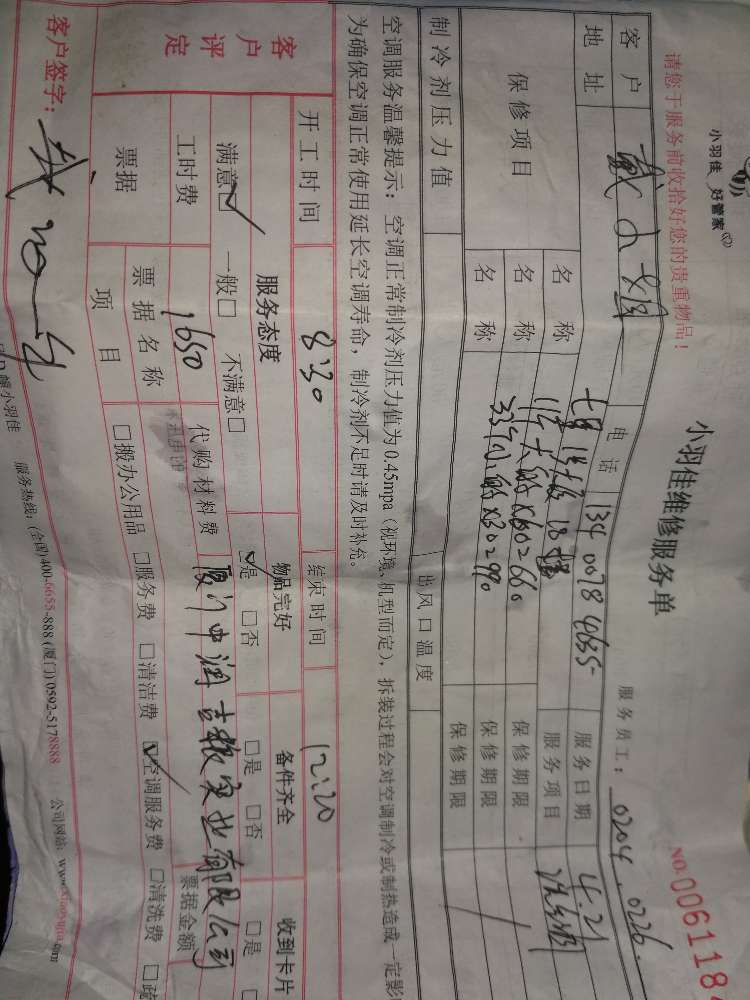 小羽佳 好管家
请您于服务前收拾好您的贵重物品！
小羽佳维修服务单
NO.0061184
服务员工： 0204 . 0226
客户 戴小姐 电话 134 0078 4635 服务日期 4.21
地址 18 服务项目
保修项目 名称 11个 ×60=660 保修期限
名称 33个 ×30=990 保修期限
名称 保修期限
制冷剂压力值 出风口温度
空调服务温馨提示：空调正常制冷剂压力值为0.45mpa（视环境、机型而定），拆装过程会对空调制冷或制热造成一定影
为确保空调正常使用延长空调寿命，制冷剂不足时请及时补充。
开工时间 8:30 结束时间 12:20
客户评定 服务态度 物品完好 备件齐全 收到卡片
满意□ 一般□ 不满意□ □是 □否 □是 □否 □是
工时费 1650 代购材料费 票据金额
厦门中润吉粮实业有限公司
票据 票据名称
项目 □搬办公用品 □服务费 □清洁费 □空调服务费 □清洗费 □疏
客户签字：
小羽佳 服务热线：(全国) 400-6655-888 (厦门) 0592-5178888 公司网站：